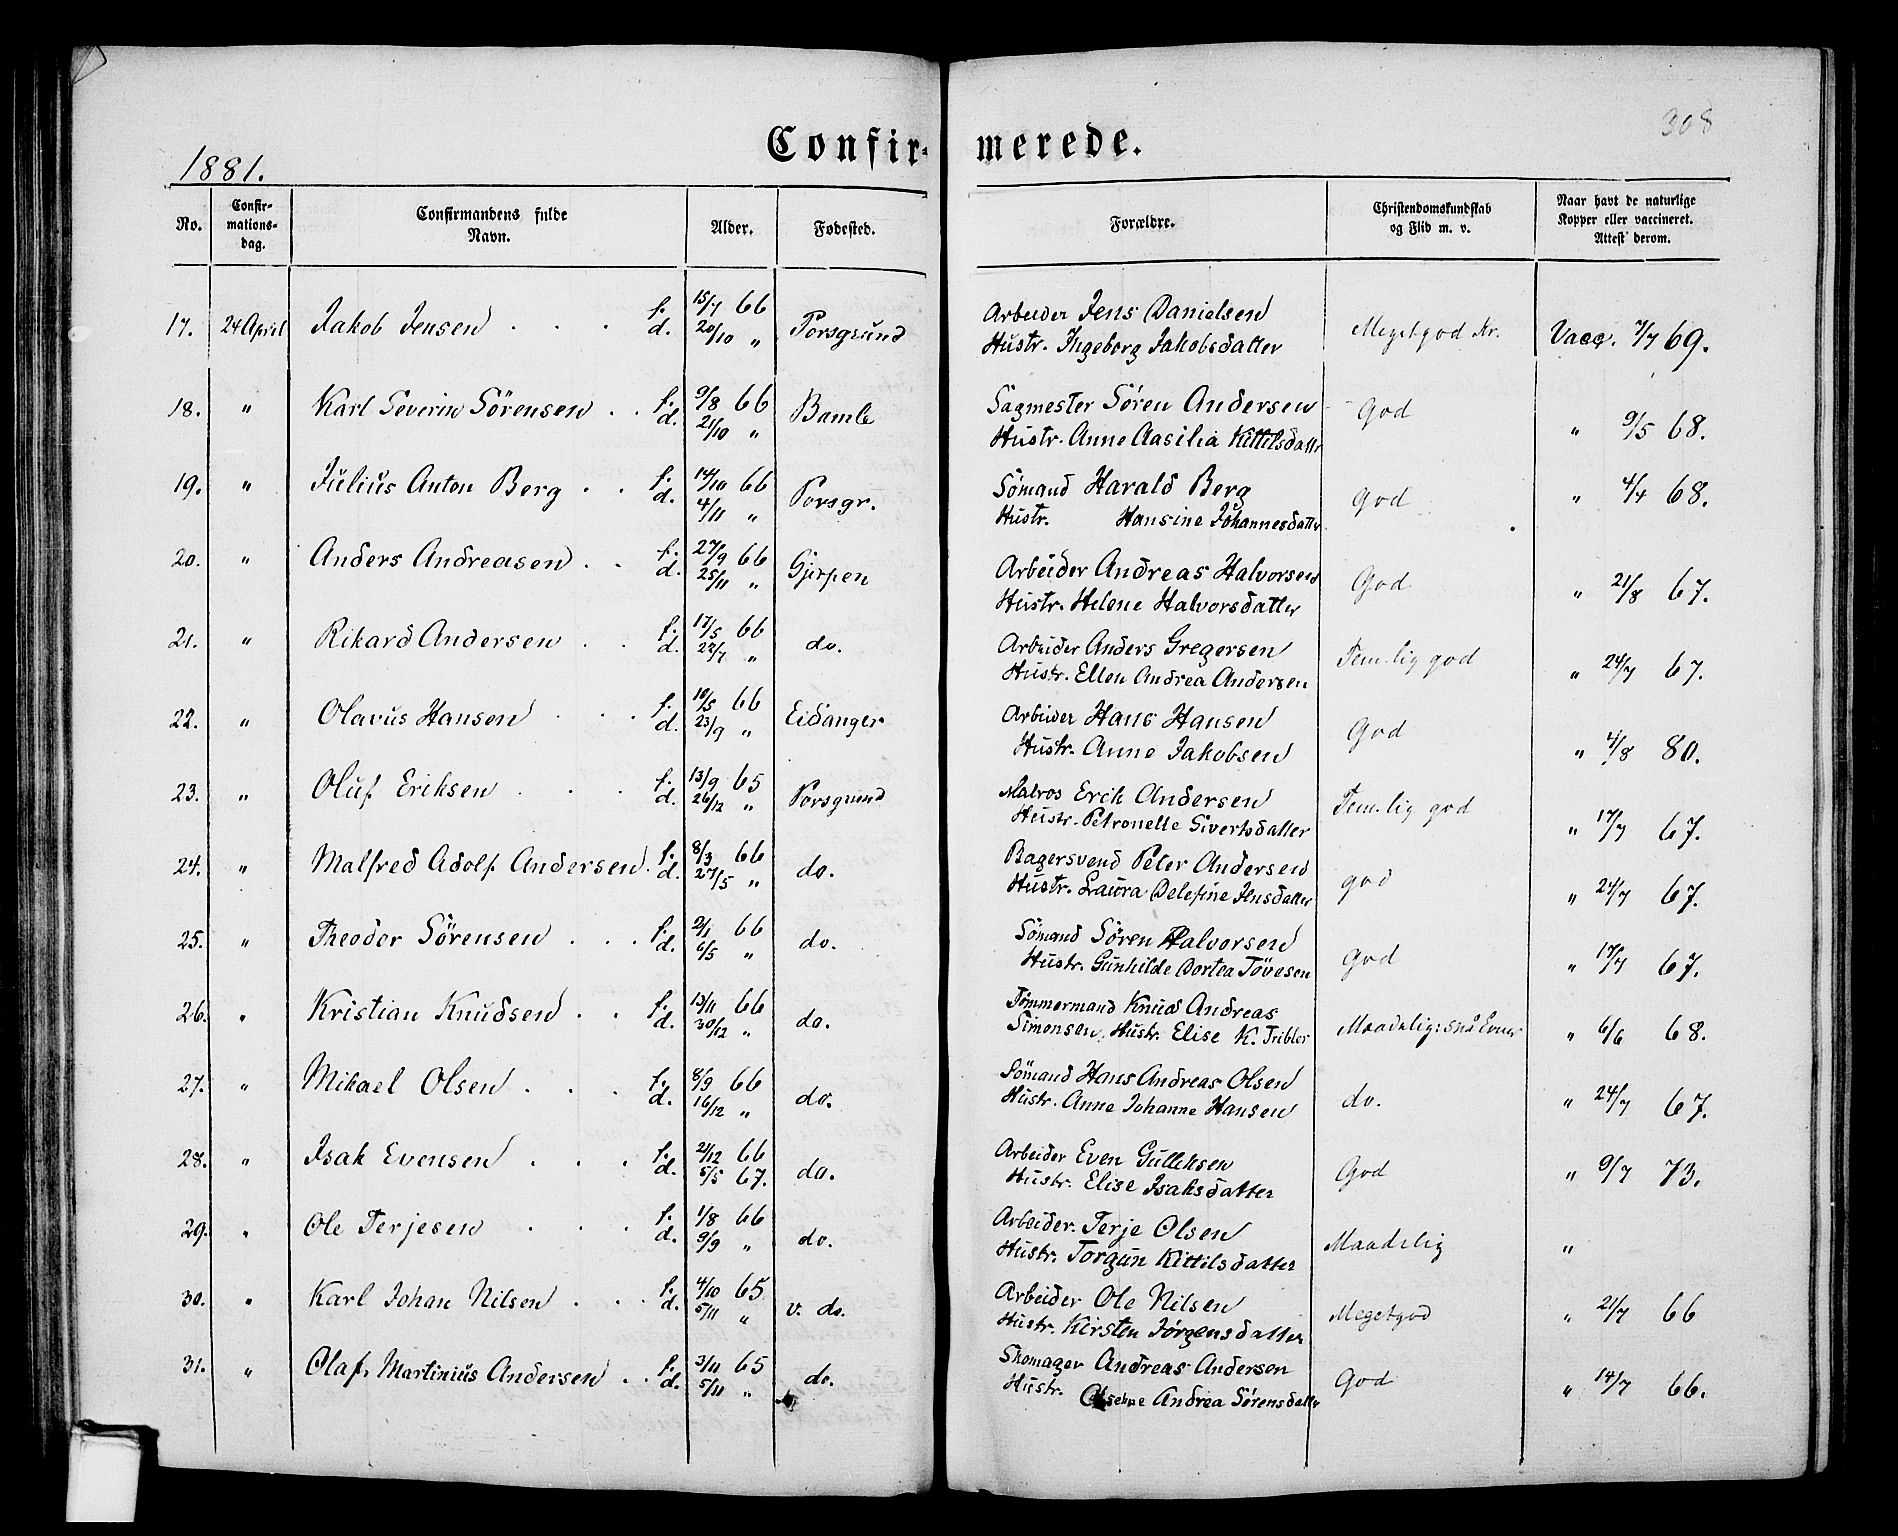 308
Confirmerede.
1881.
No. Confirmationsdag. Confirmandens fulde Navn. Alder. Fødested. Forældre. Christendomskundskab og Flid m. v. Naar havt de naturlige Kopper eller vaccineret. Attest derom.
17. 24 April Jakob Jensen f. 15/7 66 Porsgrund Arbeider Jens Danielsen Megetgod Kr. Vacc. 7/7 69.
d. 20/10 „ Hustr. Ingeborg Jakobsdatter
18. „ Karl Severin Sörensen f. 9/8 66 Bamle Sagmester Sören Andersen God „ 9/5 68.
d. 21/10 „ Hustr. Anne Aasilia Kittilsdattr
19. „ Julius Anton Berg f. 14/10 66 Porsgr. Sömand Harald Berg God „ 4/4 68.
d. 4/11 „ Hustr. Hansine Johannesdatter
20. „ Anders Andreasen f. 27/9 66 Gjerpen Arbeider Andreas Halvorsen God „ 21/8 67.
d. 25/11 „ Hustr. Helene Halvorsdatter
21. „ Rikard Andersen f. 17/5 66 do. Arbeider Anders Gregersen Temlig god „ 24/7 67.
d. 22/7 „ Hustr. Ellen Andrea Andersen
22. „ Olavus Hansen f. 10/5 66 Eidanger Arbeider Hans Hansen God „ 4/8 80.
d. 23/9 „ Hustr. Anne Jakobsen
23. „ Oluf Eriksen f. 13/9 65 Porsgrund Matros Erik Andersen Temlig god „ 17/7 67.
d. 26/12 „ Hustr. Petronelle Sivertsdatter
24. „ Malfred Adolf Andersen f. 8/3 66 do. Bagersvend Peter Andersen god „ 24/7 67.
d. 27/5 „ Hustr. Laura Delefine Jensdatter
25. „ Theodor Sörensen f. 2/1 66 do. Sömand Sören Halvorsen God „ 17/7 67.
d. 6/5 „ Hustr. Gunhilde Dortea Tövesen
26. „ Kristian Knudsen f. 13/11 66 do. Tömmermand Knud Andreas Maadelig: små Evner „ 6/6 68.
d. 30/12 „ Simonsen, Hustr. Elise K. Tribler
27. „ Mikael Olsen f. 8/9 66 do. Sömand Hans Andreas Olsen do. „ 24/7 67.
d. 16/12 „ Hustr. Anne Johanne Hansen
28. „ Isak Evensen f. 2/12 66 do. Arbeider Even Gulleksen God „ 9/7 73.
d. 5/5 67. Hustr. Elise Isaksdatter
29. „ Ole Terjesen f. 1/8 66 do. Arbeider. Terje Olsen Maadelig „
d. 9/9 „ Hustr. Torgun Kittilsdatter
30. „ Karl Johan Nilsen f. 4/10 65 v. do. Arbeider Ole Nilsen Megetgod „ 21/7 66
d. 5/11 „ Hustr. Kirsten Jörgensdatter
31. „ Olaf Martinius Andersen f. 3/11 65 do. Skomager Andreas Andersen God „ 14/7 66.
d. 5/11 „ Hustr. Andrea Sörensdatter